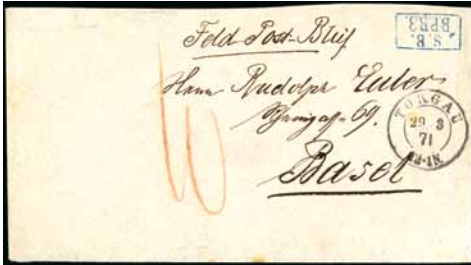 Feld-Post-Brief
Herrn Rudolph Euler
69.
Basel
10
S.B.
TORGAU
29 3
71